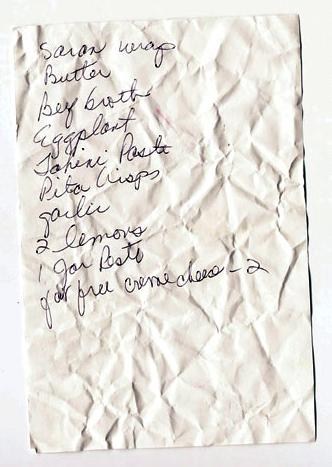 Saran wrap
Butter
Beef broth
Eggplant
Tahini Paste
Pita Crisps
garlic
2 lemons
1 Jar Pesto
fat free creme cheese - 2